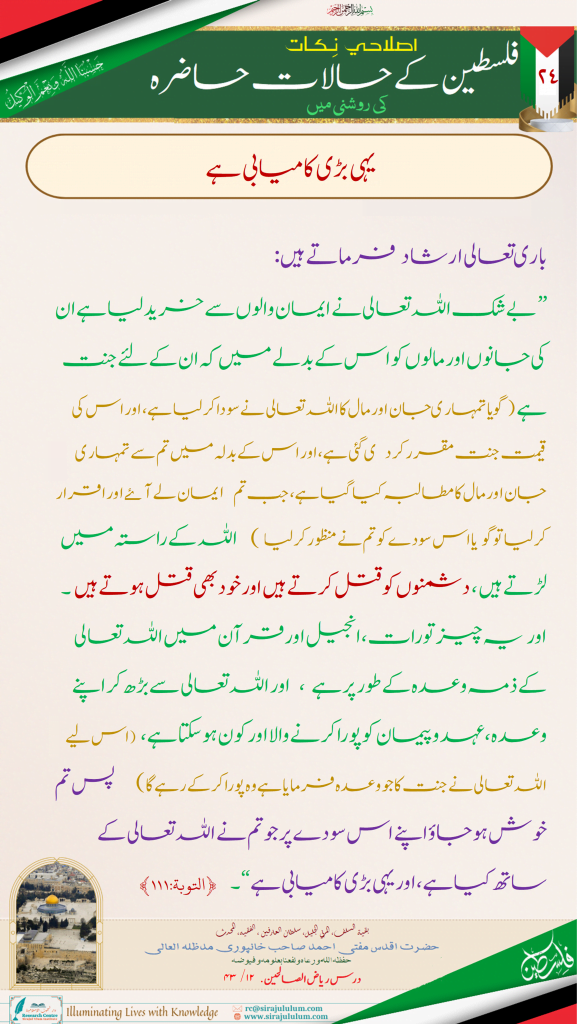 بسم اللہ الرحمن الرحیم
حَسْبُنَا اللّٰهُ وَنِعْمَ الْوَكِيْل
اصلاحی نِکات
فلسطین کے حالات حاضرہ
کی روشنی میں
٢٤
یہی بڑی کامیابی ہے
باری تعالی ارشاد فرماتے ہیں:
”بے شک اللہ تعالی نے ایمان والوں سے خرید لیا ہے ان
کی جانوں اور مالوں کو اس کے بدلے میں کہ ان کے لئے جنت
ہے (گویا تمہاری جان اور مال کا اللہ تعالی نے سودا کر لیا ہے، اور اس کی
قیمت جنت مقرر کر دی گئی ہے، اور اس کے بدلہ میں تم سے تمہاری
جان اور مال کا مطالبہ کیا گیا ہے، جب تم ایمان لے آئے اور اقرار
کر لیا تو گویا اس سودے کو تم نے منظور کر لیا) اللہ کے راستہ میں
لڑتے ہیں، دشمنوں کو قتل کرتے ہیں اور خود بھی قتل ہوتے ہیں۔
اور یہ چیز تورات، انجیل اور قرآن میں اللہ تعالی
کے ذمہ وعدہ کے طور پر ہے، اور اللہ تعالی سے بڑھ کر اپنے
وعدہ، عہد و پیمان کو پورا کرنے والا اور کون ہو سکتا ہے، (اس لیے
اللہ تعالی نے جنت کا جو وعدہ فرمایا ہے وہ پورا کر کے رہے گا) پس تم
خوش ہو جاؤ اپنے اس سودے پر جو تم نے اللہ تعالی کے
ساتھ کیا ہے، اور یہی بڑی کامیابی ہے“۔ ﴿التوبة:١١١﴾
حضرت اقدس مفتی احمد صاحب خانپوری مدظلہ العالی
حفظہ اللہ ورعاہ ونفعنا بعلومہ وفیوضہ
درس ریاض الصالحین. ١٢/ ٤٣
فلسطین
Research Centre
Illuminating Lives with Knowledge
rc@sirajululum.com
www.sirajululum.com